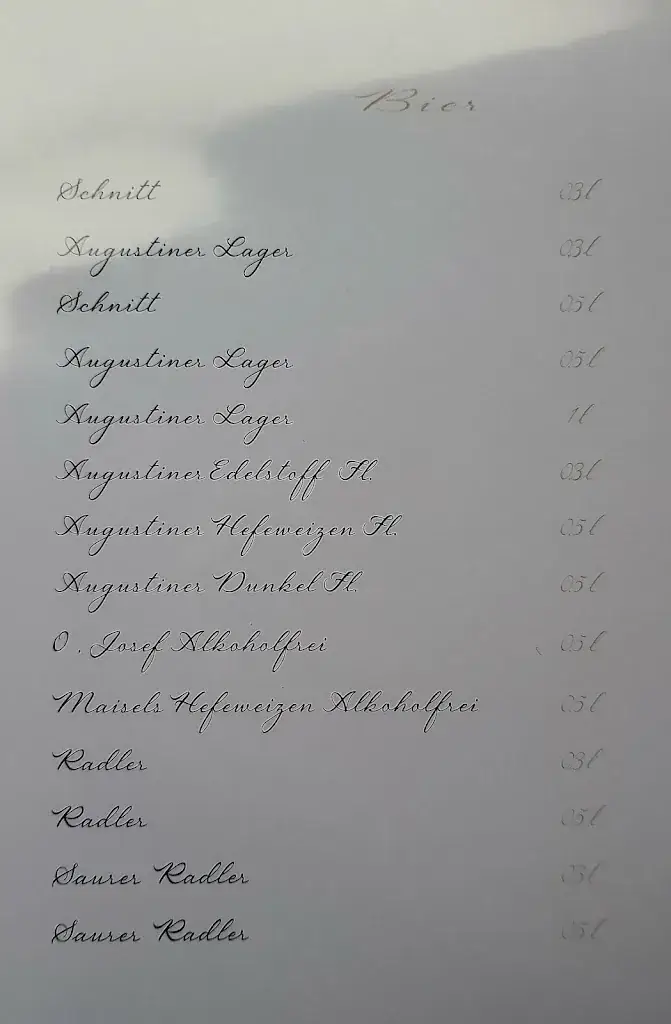 Bier
Schnitt 03 l
Augustiner Lager 03 l
Schnitt 05 l
Augustiner Lager 05 l
Augustiner Lager 1 l
Augustiner Edelstoff Fl. 03 l
Augustiner Hefeweizen Fl. 05 l
Augustiner Dunkel Fl. 05 l
O . Josef Alkoholfrei 05 l
Maisels Hefeweizen Alkoholfrei 05 l
Radler 03 l
Radler 05 l
Saurer Radler 03 l
Saurer Radler 05 l